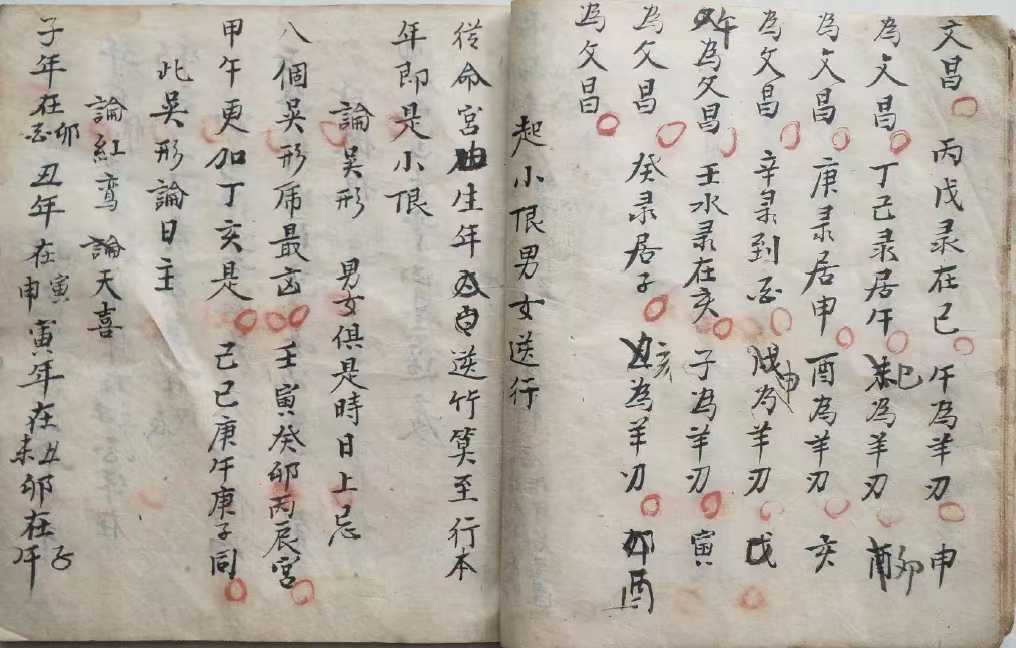 文昌 丙戊彔在巳 午為羊刃 申
為文昌 丁己彔居午 巳為羊刃 卯
為文昌 庚彔居申 酉為羊刃 亥
為文昌 辛彔到酉 申為羊刃 戊
午為文昌 壬水彔在亥 子為羊刃 寅
為文昌 癸彔居子 亥為羊刃 酉
為文昌
起小限男女送行
從命宮 生年 送竹算至行本
年即是小限
論吳形 男女俱是時日上忌
八個吳形 最凶 壬寅癸卯丙辰宮
甲午更加丁亥是 己巳庚午庚子同
此吳形論日主
論紅鸾 論天喜
子年在卯酉 丑年在寅申 寅年在丑未 卯在子午